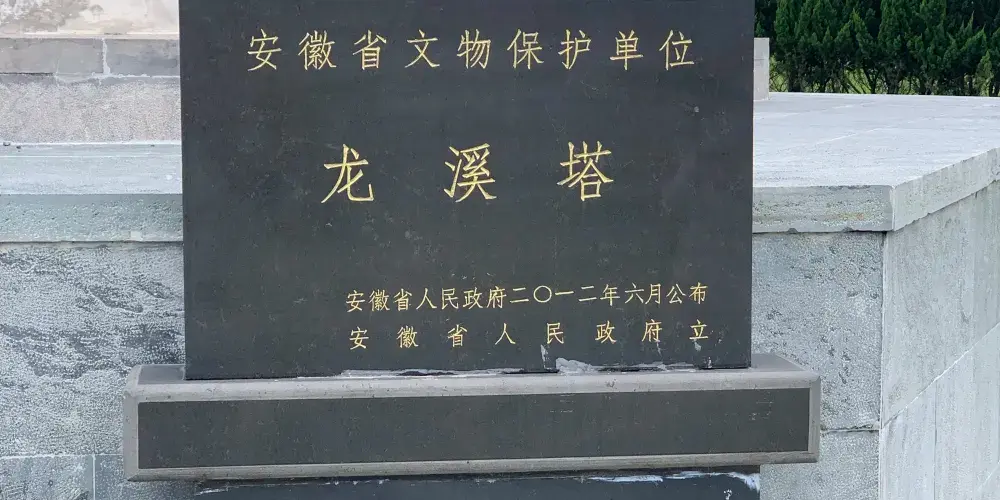 安徽省文物保护单位
龙溪塔
安徽省人民政府二〇一二年六月公布
安徽省人民政府立